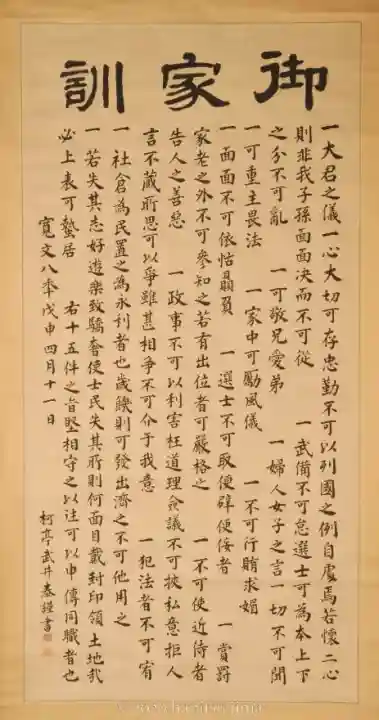 御家訓
一大君之儀一心大切可存忠勤不可以列國之例自處焉若懷二心
則非我子孫面面決而不可從　一武備不可怠選士可為本上下
之分不可亂　一可敬兄愛弟　一婦人女子之言一切不可聞
一可重主畏法　一家中可勵風儀　一不可行賄求媚
一面面不可依怙贔屓　一選士不可取便辟便佞者　一賞罸
家老之外不可參知之若有出位者可嚴格之　一不可使近侍者
告人之善惡　一政事不可以利害枉道理僉議不可挾私意拒人
言不藏所思可以爭雖甚相爭不可介于我意　一犯法者不可宥
一社倉為民置之為永利者也歲饑則可發出濟之不可他用之
一若失其志好遊樂致驕奢使士民失其所則何面目戴封印領土地哉
必上表可蟄居　右十五件之旨堅相守之以往可以申傳同職者也
寛文八年戊申四月十一日
柯亭武井泰謹書